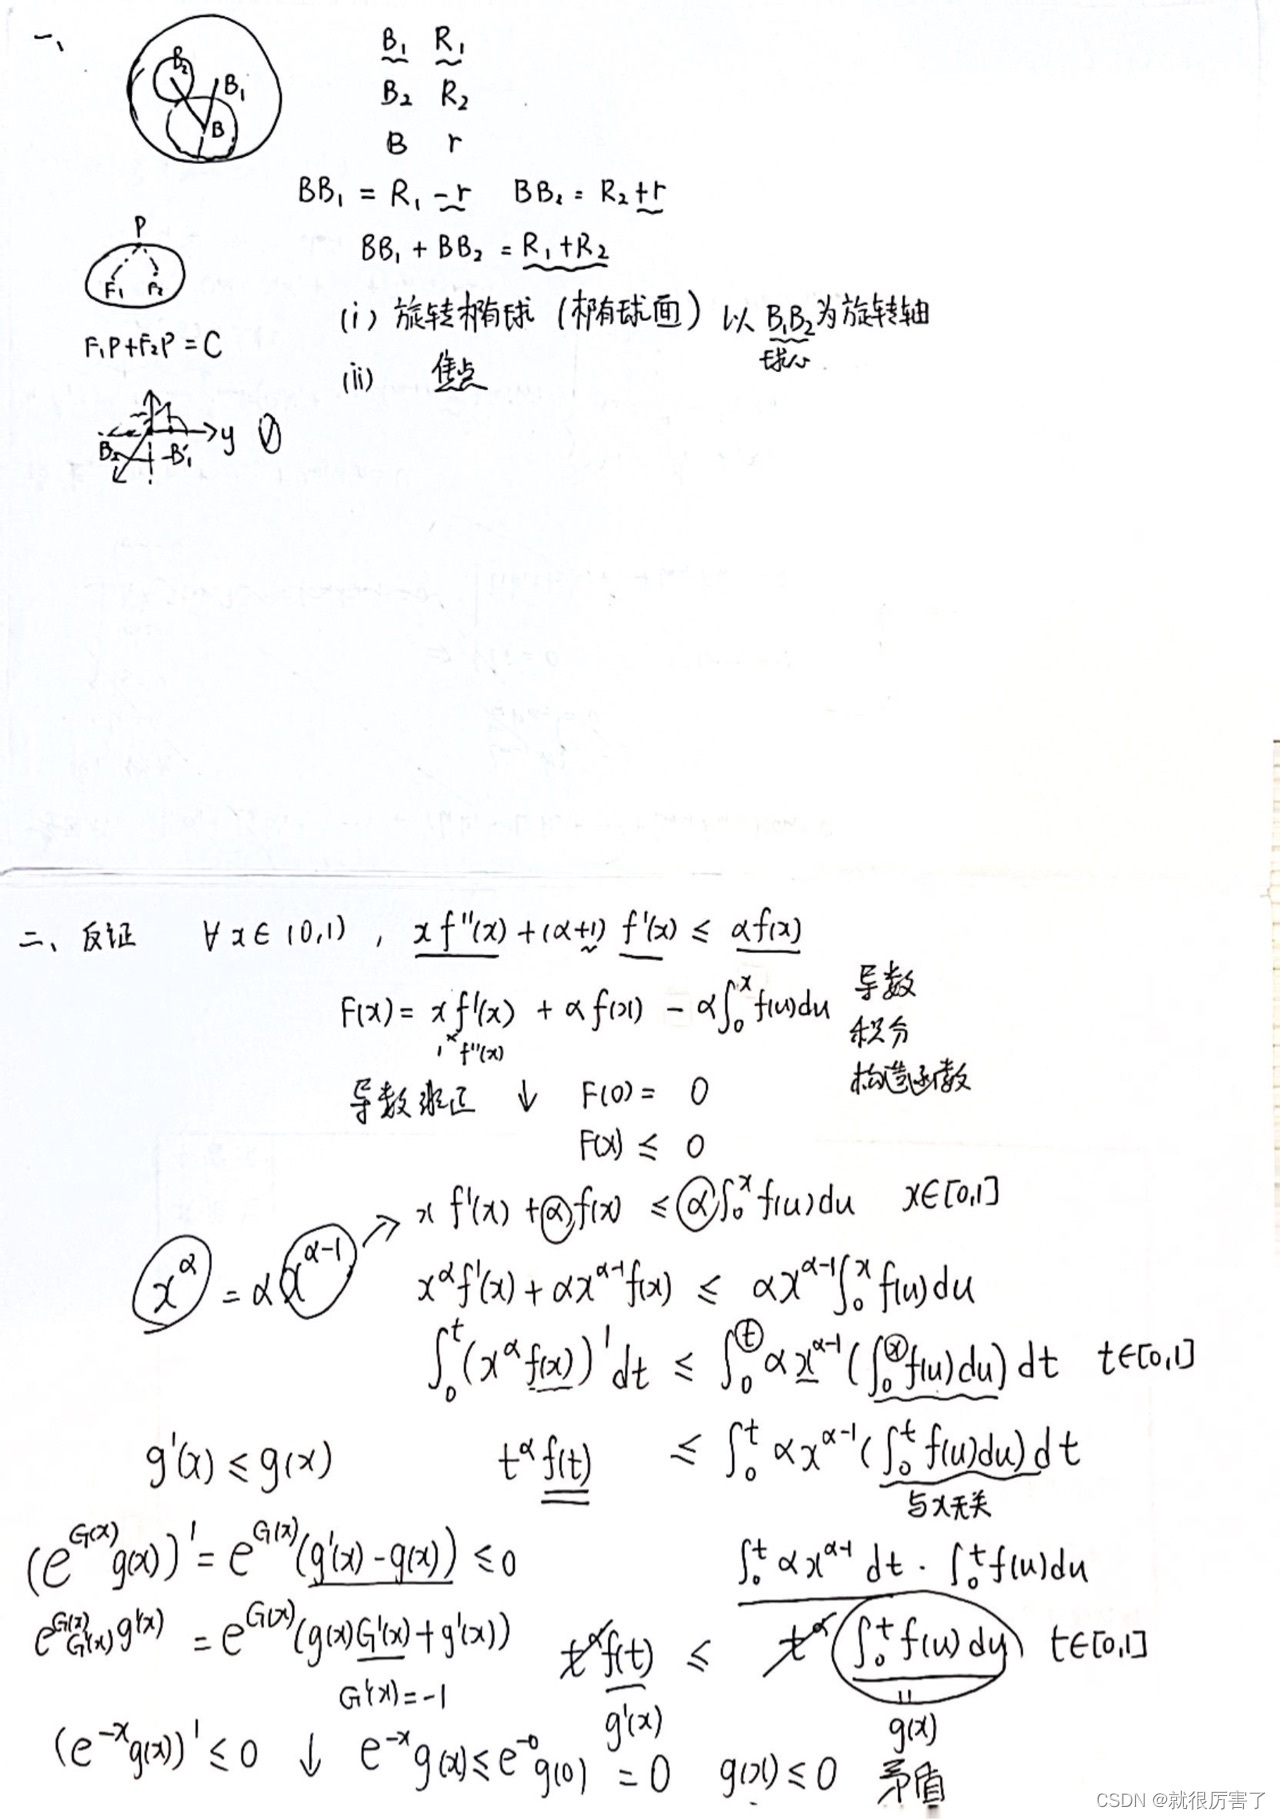 一、
B₂ B₁ B
B₁ R₁
B₂ R₂
B r
BB₁ = R₁ - r BB₂ = R₂ + r
BB₁ + BB₂ = R₁ + R₂
P
F₁ F₂
F₁P + F₂P = C
(i) 旋转椭球 (椭球面) 以 B₁B₂ 为旋转轴
球心
(ii) 焦点
B₂ B₁ y
二、反证 ∀ x ∈ (0,1) , x f''(x) + (α+1) f'(x) ≤ α f(x)
F(x) = x f'(x) + α f(x) - α∫₀ˣ f(u)du 导数
1 × f''(x) 积分
构造函数
导数非正 ↓ F(0) = 0
F(x) ≤ 0
x f'(x) + α f(x) ≤ α∫₀ˣ f(u)du x∈[0,1]
x^α = α x^(α-1)
x^α f'(x) + αx^(α-1) f(x) ≤ αx^(α-1) ∫₀ˣ f(u)du
∫₀ᵗ (x^α f(x))' dt ≤ ∫₀ᵗ αx^(α-1) (∫₀ˣ f(u)du) dt t∈[0,1]
g'(x) ≤ g(x) t^α f(t) ≤ ∫₀ᵗ αx^(α-1) (∫₀ᵗ f(u)du) dt
与x无关
(e^G(x) g(x))' = e^G(x) (g'(x) - g(x)) ≤ 0 ∫₀ᵗ αx^(α-1) dt · ∫₀ᵗ f(u)du
e^G(x) G'(x) g'(x) = e^G(x) (g(x)G'(x) + g'(x)) t^α f(t) ≤ t^α ∫₀ᵗ f(u)du t∈[0,1]
G'(x) = -1 g'(x) g(x)
(e^-x g(x))' ≤ 0 ↓ e^-x g(x) ≤ e^-0 g(0) = 0 g(x) ≤ 0 矛盾
CSDN @就很厉害了